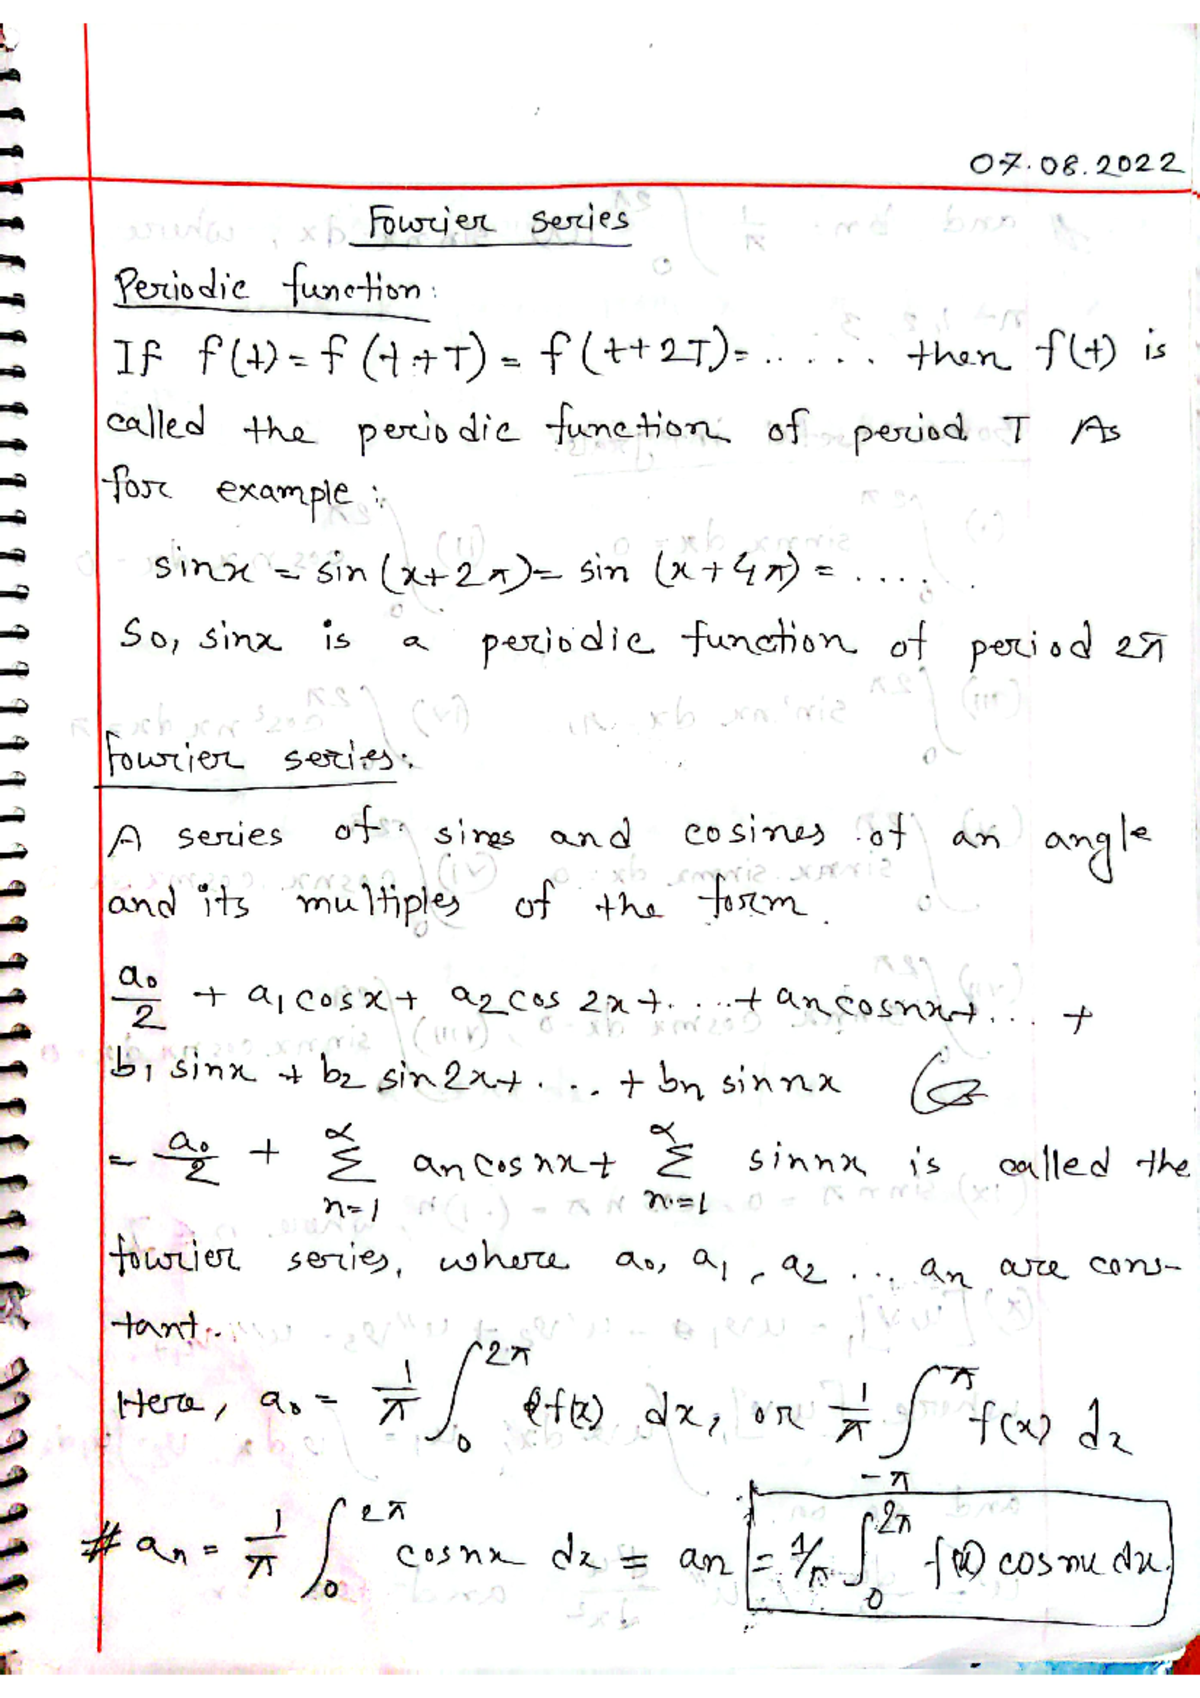 07.08.2022
Fourier series
Periodic function:
If f(t) = f(t+T) = f(t+2T)= ..... then f(t) is
called the periodic function of period T As
for example:
sinx = sin(x+2π)= sin (x+4π) = .....
So, sinx is a periodic function of period 2π
Fourier series:
A series of sines and cosines of an angle
and its multiples of the form.
a₀/2 + a₁cosx + a₂cos 2x + ... + aₙcosnx + ... +
b₁ sinx + b₂ sin2x + ... + bₙ sinnx
= a₀/2 + ∑_{n=1}^{α} aₙcosnx + ∑_{n=1}^{α} sinnx is called the
fourier series, where a₀, a₁, a₂ ... aₙ are cons-
tant.
Here, a₀ = 1/π ∫₀^{2π} f(x) dx, or 1/π ∫_{-π}^{π} f(x) dx
# aₙ = 1/π ∫₀^{2π} cosnx dx = aₙ = 1/π ∫₀^{2π} f(x) cosnx dx.